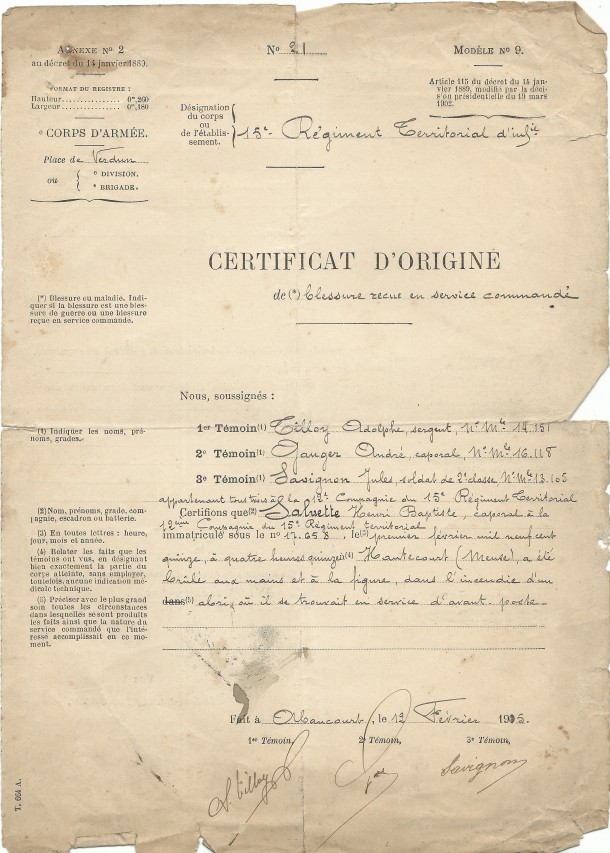 ANNEXE N° 2
au décret du 14 janvier 1889.
N° 21
MODÈLE N° 9.
FORMAT DU REGISTRE :
Hauteur............... 0m,260
Largeur............... 0m,180
Article 115 du décret du 14 jan-
vier 1889, modifié par la déci-
sion présidentielle du 19 mars
1902.
Désignation
du corps
ou
de l'établis-
sement.
15e Régiment Territorial d'infie
e CORPS D'ARMÉE.
Place de Verdun
ou
e DIVISION.
e BRIGADE.
CERTIFICAT D'ORIGINE
de (*) blessure reçue en service commandé
(*) Blessure ou maladie. Indi-
quer si la blessure est une bles-
sure de guerre ou une blessure
reçue en service commande.
Nous, soussignés :
(1) Indiquer les noms, pré-
noms, grades.
1er Témoin(1) Tilloy Adolphe, sergent, N° Mle 14.151
2e Témoin(1) Ganger André, caporal, N° Mle 16.118
3e Témoin(1) Savignon Jules, soldat de 2e classe, N° Mle 13.105
appartenant tous trois à la 12e Compagnie du 15e Régiment Territorial
(2) Nom, prénoms, grade, com-
pagnie, escadron ou batterie.
(3) En toutes lettres : heure,
jour, mois et année.
(4) Relater les faits que les
témoins ont vus, en désignant
bien exactement la partie du
corps atteinte, sans employer,
toutefois, aucune indication mé-
dicale technique.
(5) Préciser avec le plus grand
soin toutes les circonstances
dans lesquelles se sont produits
les faits ainsi que la nature du
service commandé que l'inté-
resse accomplissait en ce mo-
ment.
Certifions que(2) Salvette Henri Baptiste, caporal à la
12ème Compagnie du 15e Régiment territorial
immatriculé sous le n° 17.658, le(3) premier février mil neuf cent
quinze, à quatre heures quinze(4) Hautecourt (Meuse), a été
brûlé aux mains et à la figure, dans l'incendie d'un
dans(5) abri, où il se trouvait en service d'avant-poste
Fait à Abaucourt, le 12 Février 1915.
1er Témoin, 2e Témoin, 3e Témoin,
A. Tilloy
Savignon
T. 664 A.